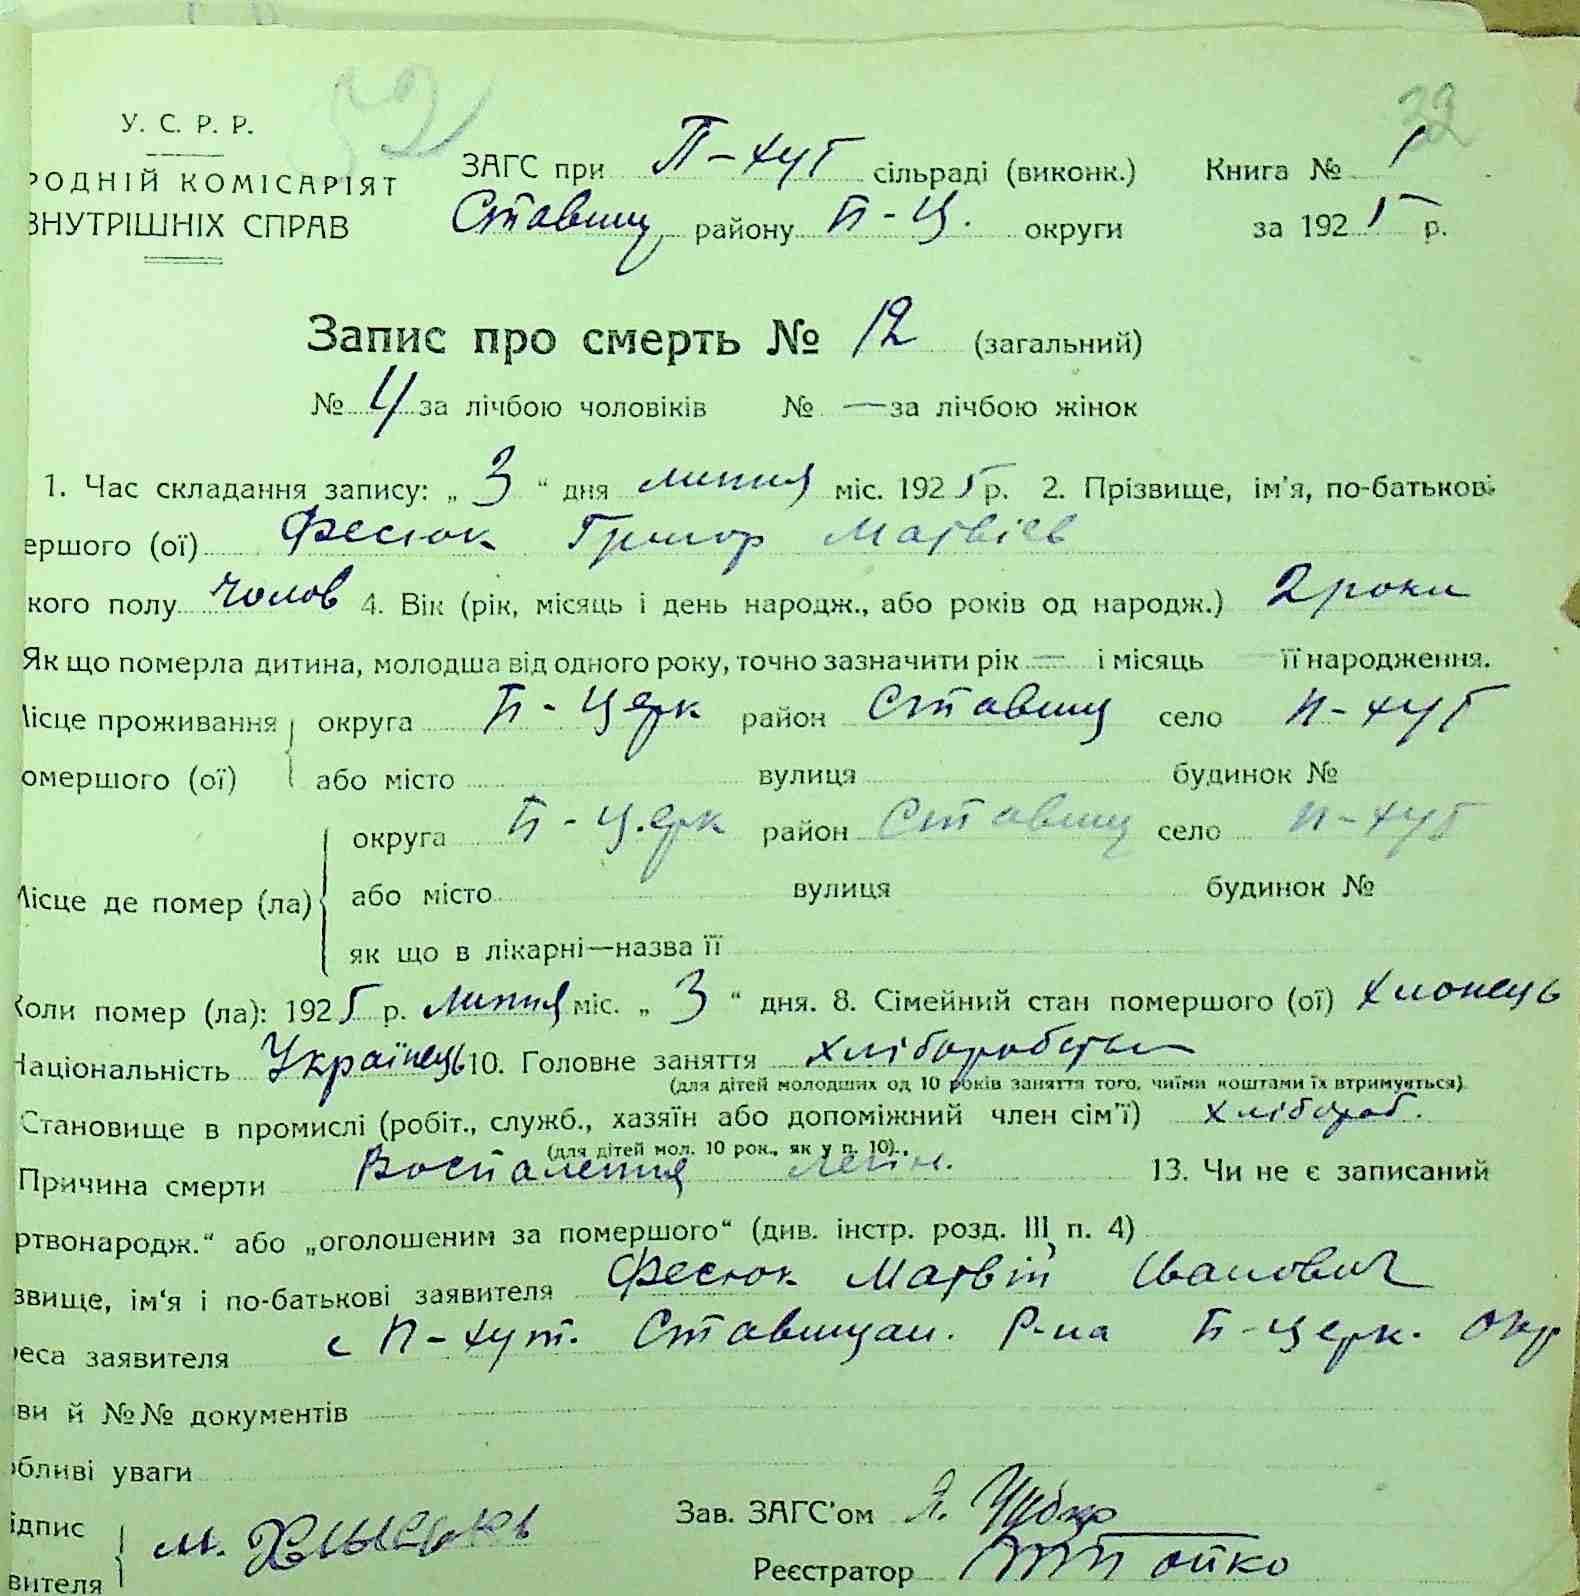 52
32
У. С. Р. Р.
РОДНІЙ КОМІСАРІЯТ
ВНУТРІШНІХ СПРАВ
ЗАГС при П-хут сільраді (виконк.) Книга № 1
Ставищ району Б-Ц. округи за 1925 р.
Запис про смерть № 12 (загальний)
№ 4 за лічбою чоловіків № — за лічбою жінок
1. Час складання запису: „ 3 “ дня липня міс. 1925 р. 2. Прізвище, ім'я, по-батькові
ершого (ої) Фесюк Григор Матвієв
кого полу чолов 4. Вік (рік, місяць і день народж., або років од народж.) 2 роки
Як що померла дитина, молодша від одного року, точно зазначити рік — і місяць — її народження.
Місце проживання округа Б-Церк район Ставищ село П-хут
омершого (ої) або місто вулиця будинок №
округа Б-Церк район Ставищ село П-хут
Місце де помер (ла) або місто вулиця будинок №
як що в лікарні—назва її
Коли помер (ла): 1925 р. липня міс. „ 3 “ дня. 8. Сімейний стан помершого (ої) хлопець
Національність Українець 10. Головне заняття хліборобство
(для дітей молодших од 10 років заняття того, чиїми коштами їх втримується)
Становище в промислі (робіт., служб., хазяїн або допоміжний член сім'ї) хлібороб.
(для дітей мол. 10 рок., як у п. 10).
Причина смерти Воспаления легк. 13. Чи не є записаний
ртвонародж.“ або „оголошеним за помершого“ (див. інстр. розд. III п. 4)
звище, ім'я і по-батькові заявителя Фесюк Матвій Иванович
реса заявителя с П-хут. Ставищан. Р-на Б-Церк. окр
ви й №№ документів
обливі уваги
ідпис М. Зав. ЗАГС'ом Я.
вителя Реєстратор